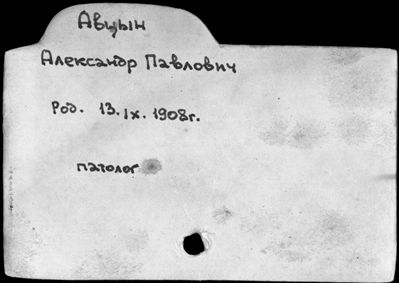 Авцын
Александр Павлович
Род. 13.IX.1908г.
патолог